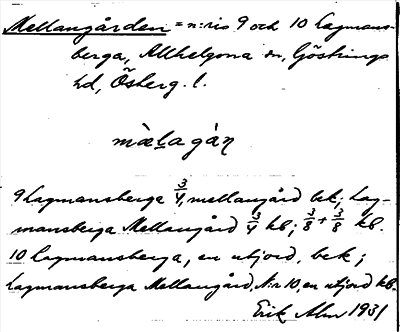 Mellangården = n:ris 9 och 10 Lagmans-
berga, Allhelgona sn, Göstrings
hd, Österg. l.
mæ̀lagàɳ
9 Lagmansberga 3/4, mellangård bek; Lag-
mansberga Mellangård 3/4 kb; 3/8 + 3/8 kb.
10 Lagmansberga, en utjord, bek;
Lagmansberga Mellangård, N:r 10, en utjord kb.
Erik Alm 1931